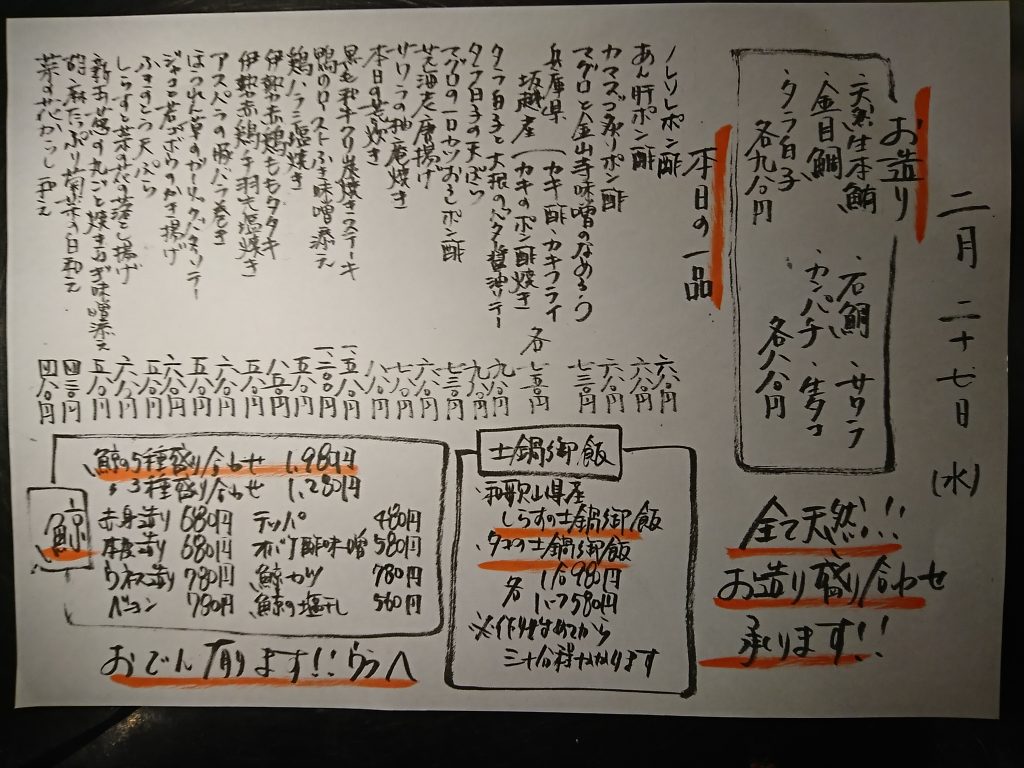 二月二十七日(水)
お造り
・天然生本鮪
・金目鯛
・タラ白子
各九八〇円
・石鯛 ・サワラ
・カンパチ ・生タコ
各八八〇円
全て天然!!!
お造り盛り合わせ
承ります!!
本日の一品
ノレソレポン酢 六八〇円
あん肝ポン酢 六八〇円
カマスつ炙りポン酢
マグロと金山寺味噌のなめろう 七三〇円
兵庫県
坂越産 カキ酢・カキフライ
カキのポン酢焼き 各七五〇円
タラ白子と大根のバター醤油ソテー 九八〇円
タラ白子の天ぷら
マグロの一口カツおろしポン酢 七三〇円
芝海老唐揚げ 六八〇円
サワラの柚庵焼き
本日の煮炊き 八八〇円
黒毛和牛クリ炭焼きステーキ 一、五八〇円
鴨のローストふき味噌添え
鶏ハラミ塩焼き
伊勢赤鶏ももタタキ
伊勢赤鶏手羽先塩焼き 五八〇円
アスパラの豚バラ巻き
ほうれん草のガーリックバターソテー
ジャコと若ゴボウのかき揚げ
ふきのとう天ぷら
しらすと菜の花の落とし揚げ
新玉ねぎの丸ごと焼きねぎ味噌添え
菊菜の白和え 四三〇円
菜の花からし和え 四八〇円
土鍋御飯
・和歌山県産
しらすの土鍋御飯
・タコの土鍋御飯
各 1合980円
1.5 1,580円
※作り始めてから
三十分程かかります
鯨
鯨の5種盛り合わせ 1,980円
〃 3種盛り合わせ 1,280円
赤身造り 680円 テッパ 480円
本皮造り 680円 オバケ酢味噌 580円
ウネス造り 780円 鯨カツ 780円
ベーコン 780円 鯨の塩干し 560円
おでん有ります!!ウラへ